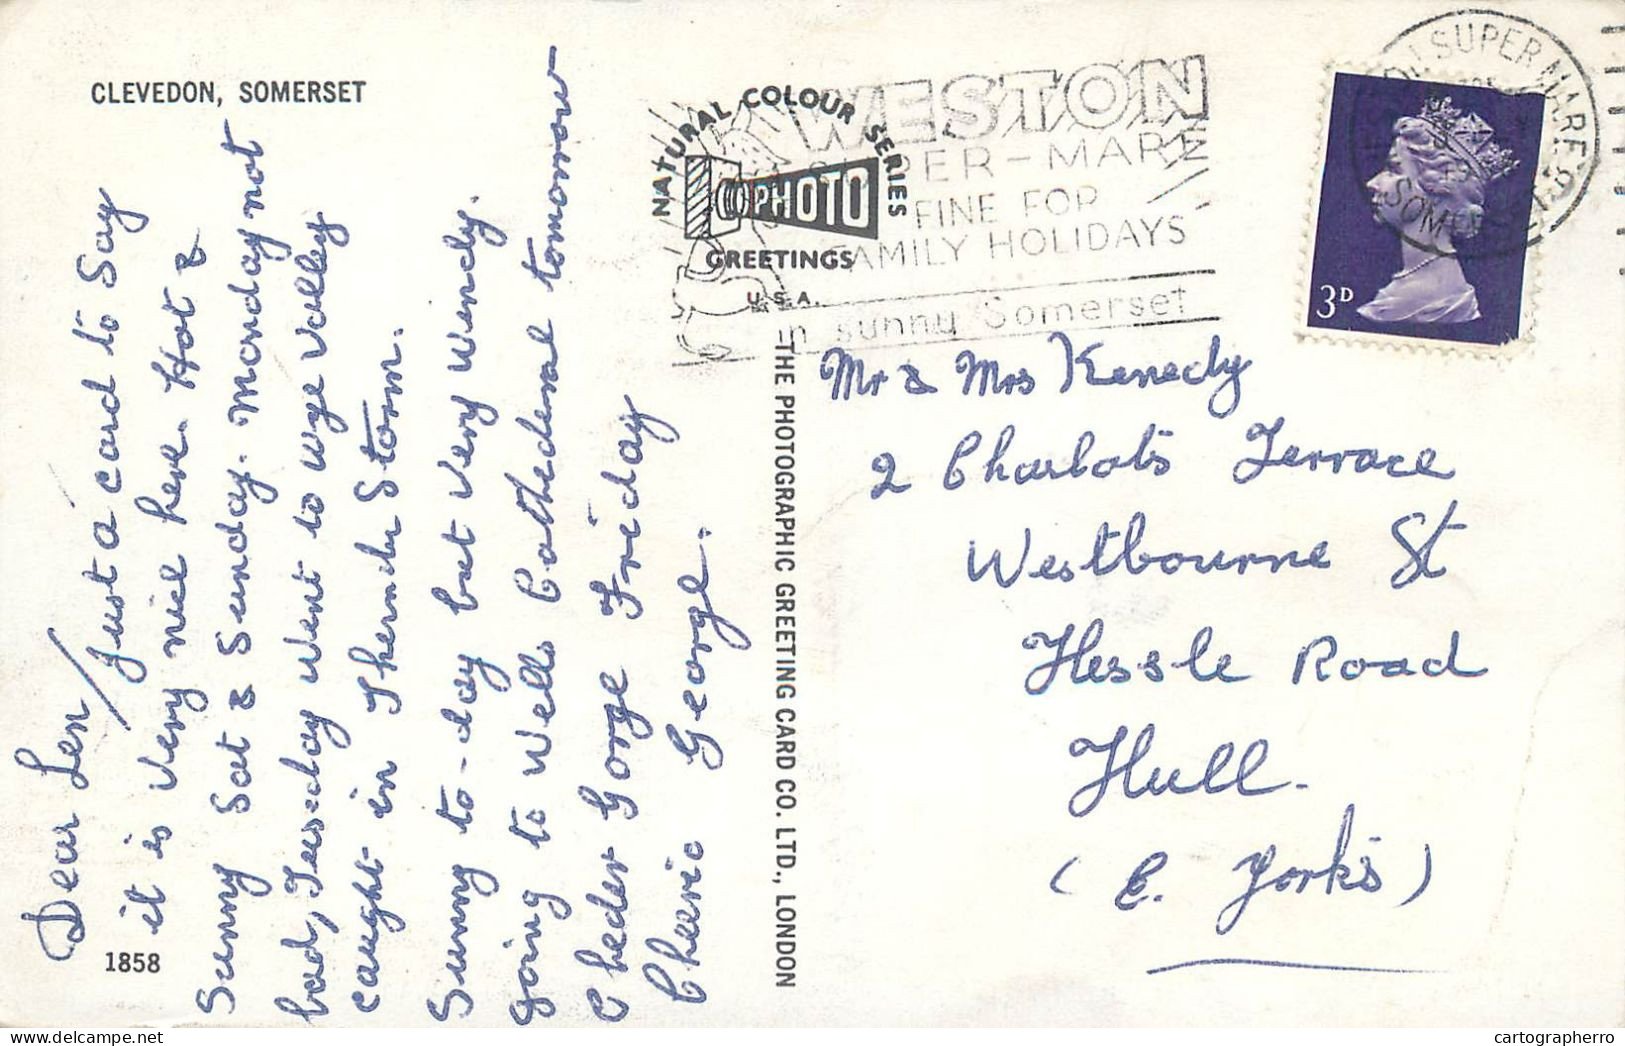 CLEVEDON, SOMERSET
Dear Len/Just a card to Say
it is very nice here. Hot &
Sunny Sat & Sunday. Monday not
bad, Tuesday went to Wye Valley
caught in Thunder Storm.
Sunny to-day but very windy.
going to Wells Cathederal tomorrow
Cheder Gorge Friday
Cheerio George.
1858
NATURAL COLOUR SERIES
PHOTO
GREETINGS
U.S.A.
THE PHOTOGRAPHIC GREETING CARD CO. LTD., LONDON
WESTON
SUPER-MARE
FINE FOR
FAMILY HOLIDAYS
in sunny Somerset
SUPER MARE
SOMERSET
3D
Mr & Mrs Kenedy
2 Charlot's Terrace
Westbourne St
Hessle Road
Hull.
(E. Yorks)
cartographerro